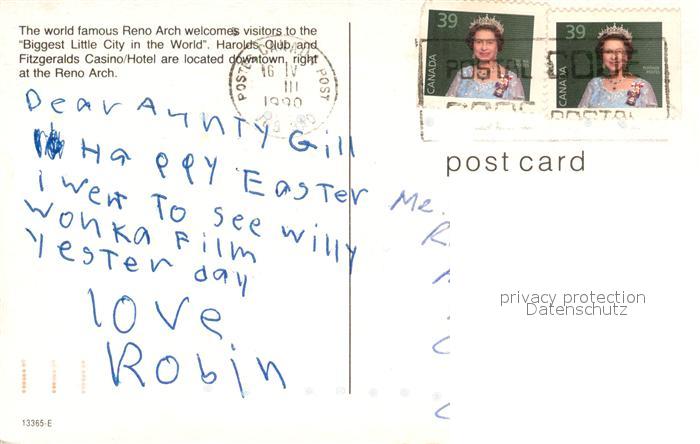 The world famous Reno Arch welcomes visitors to the
"Biggest Little City in the World". Harolds Club and
Fitzgeralds Casino/Hotel are located downtown, right
at the Reno Arch.
39
CANADA
39
CANADA
POSTAL CODE
CANADA
POST
16 IV
1990
POST
post card
Dear Aunty Gill
Happy Easter
i went To see willy
wonka Film
yester day
love
Robin
privacy protection
Datenschutz
13365-E